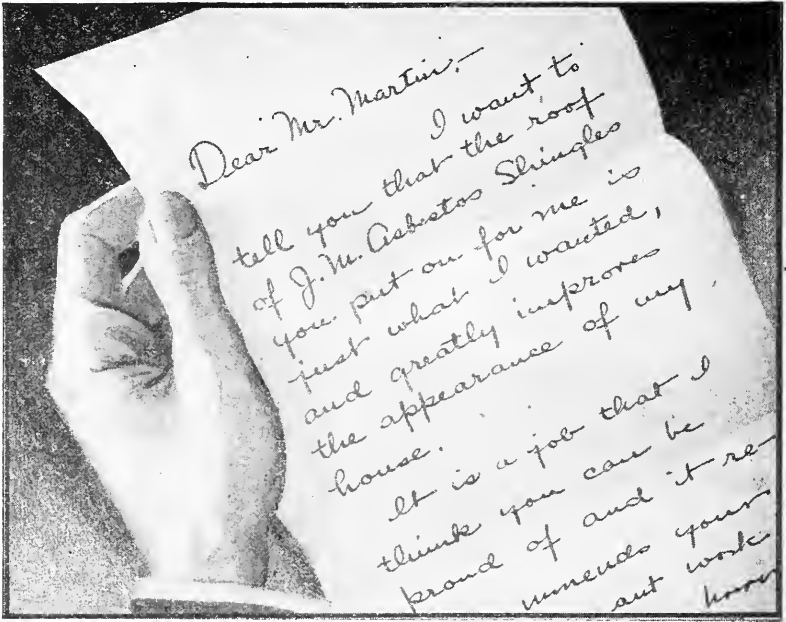 Dear Mr. Martin,—
I want to
tell you that the roof
of J. M. Asbestos Shingles
you put on for me is
just what I wanted,
and greatly improves
the appearance of my
house.
It is a job that I
think you can be
proud of and it re-
mmends your
work